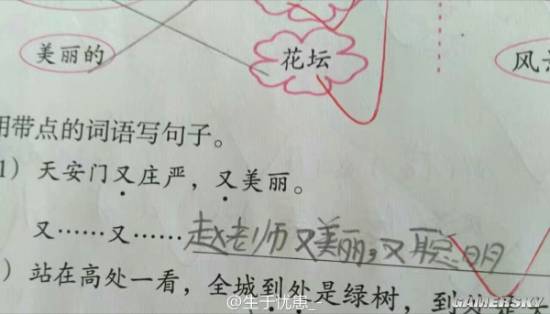 美丽的
花坛
风
用带点的词语写句子。
1) 天安门又庄严，又美丽。
又……又……赵老师又美丽，又聪明
) 站在高处一看，全城到处是绿树，到
@生于忧患_-
GAMERSKY